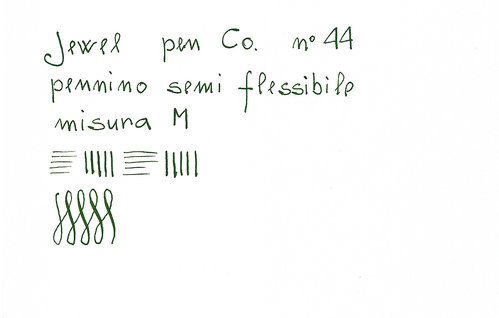 Jewel pen Co. n° 44
pennino semi flessibile
misura M